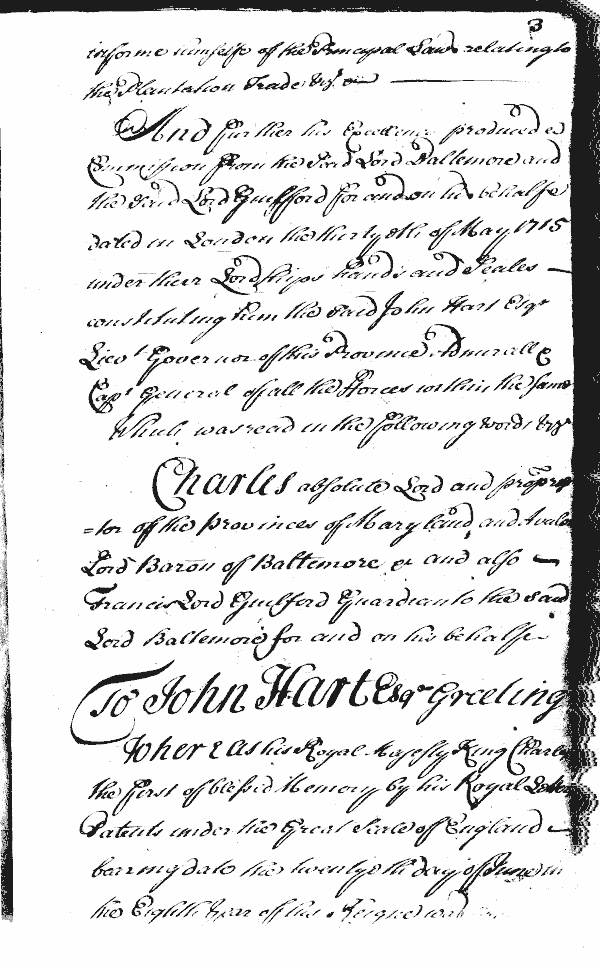 3
informe himselfe of the Principal Laws relating to
the Plantation Trade &c.
And further his Excellency produced a
Commission from the said Lord Baltemore and
the said Lord Guilford for and on his behalfe
dated in London the thirtyeth of May 1715
under their Lordships hands and Seales —
constituting him the said John Hart Esqr
Lievt Governor of this Province Admirall &
Capt General of all the Forces within the same
Which was read in the following words &c
Charles absolute Lord and propri
=tor of the Provinces of Maryland and Avalon
Lord Baron of Baltemore &c and also —
Francis Lord Guilford Guardian to the said
Lord Baltemore for and on his behalfe
To John Hart Esqr Greeting
Whereas his Royal Majesty King Charles
the First of blessed Memory by his Royal Letters
Patents under the Great Seale of England —
bearing date the twentyeth day of June in
the Eighth Year of his Reigne